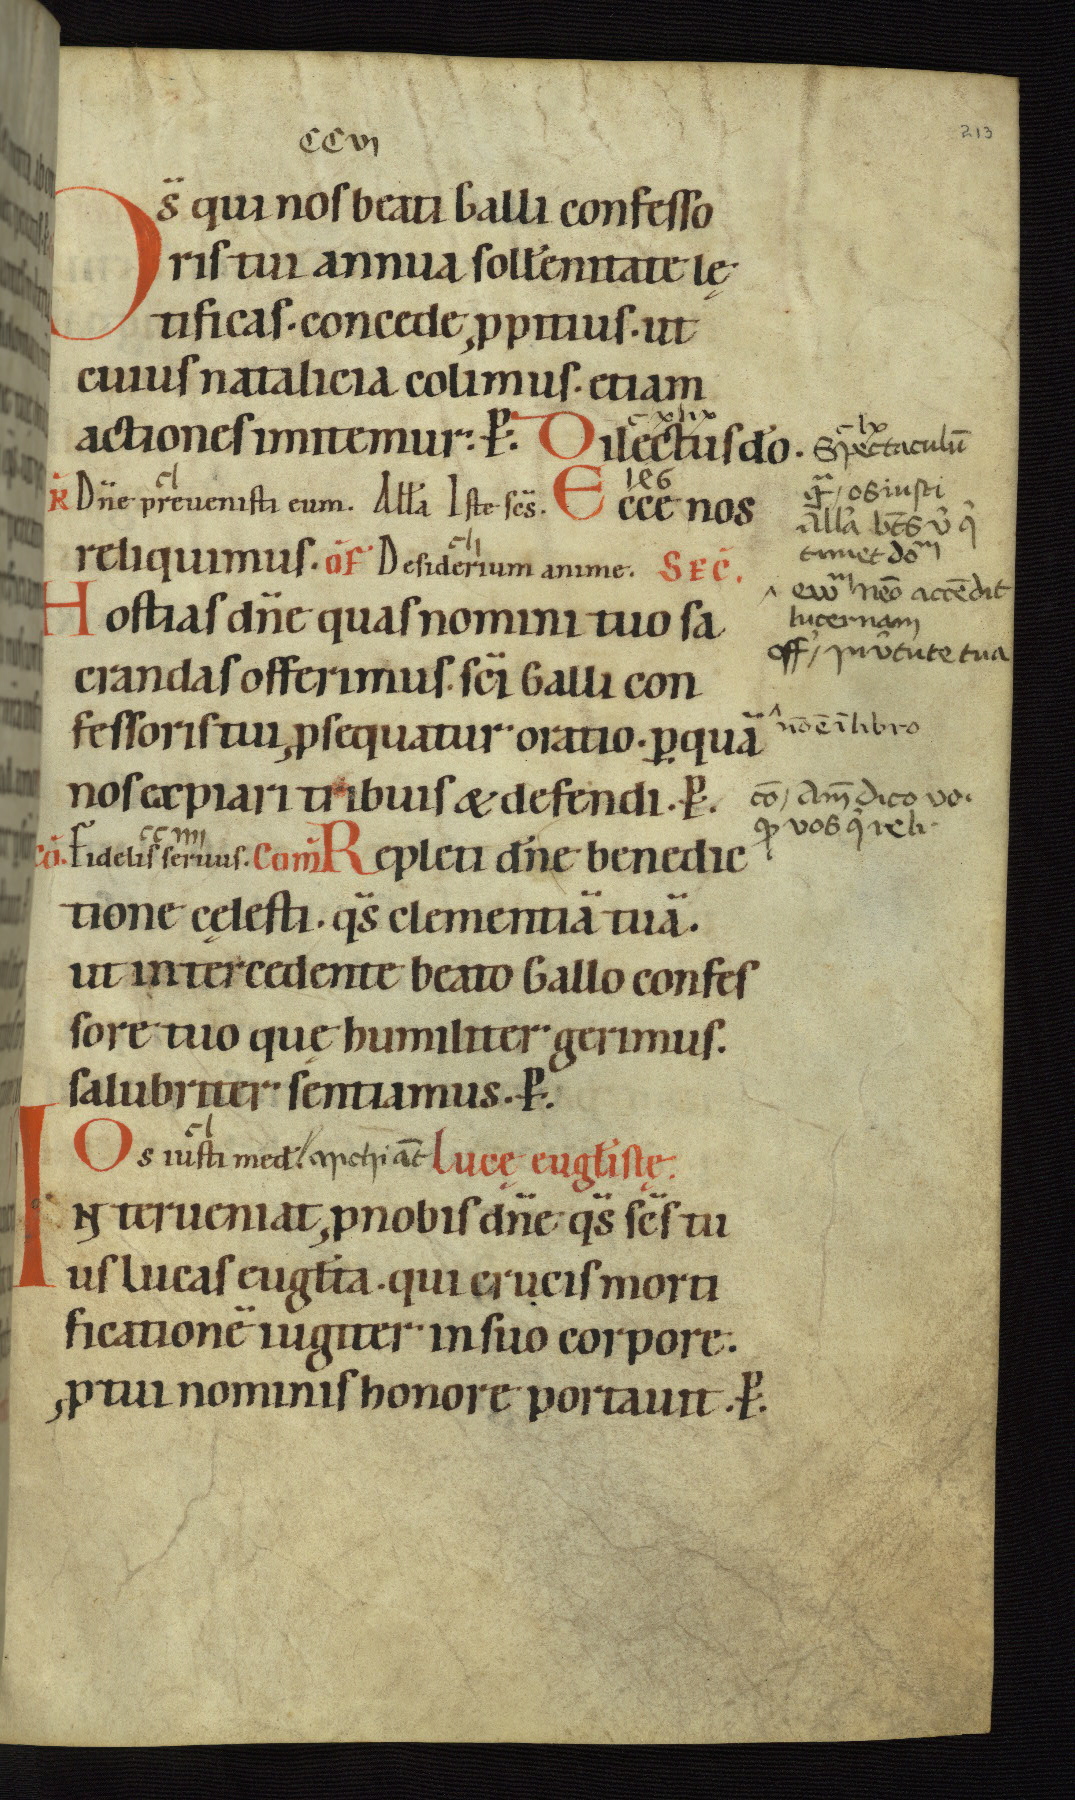 CCVI
213
Ds̄ qui nos beati Galli confesso
ris tui annua sollēnitate lę
tificas · concede p̱pitius · ut
cuius natalicia colimus · etiam
actiones imitemur : P̄ . Dilectus dō · Spectaculū
cxlix
clx
R̄ Dn̄e prevenisti eum . All̄a Iste scs̄ . Ecce nos
cl
186
reliquimus . of Desiderium anime . SEC̄ .
cli
Hostias dn̄e quas nomini tuo sa
crandas offerimus . sc̄i Galli con
fessoris tui p̱sequatur oratio . p̱ quā
nos expiari tribuis & defendi . P̄ .
cō . Fidelis seruus . Com̄ Repleti dn̄e benedic
cciiii
tione cęlesti . qs̄ clementiā tuā .
ut intercedente beato Gallo confes
sore tuo quę humiliter gerimus .
salubriter sentiamus . P̄ .
Os iusti med Lucę eugl̄istę .
cl
Interueniat p̱ nobis dn̄e qs̄ sc̄s tu
us Lucas eugl̄ta . qui crucis morti
ficationē iugiter in suo corpore .
p̱ tui nominis honore portauit . P̄ .
gr̄ / os iusti
all̄a bt̄s v̄ q̄
timet dom̄
ew̄ neō accēdit
lucernam
off / in v̄tute tua
nō ē ī libro
cō / Am̄ dico vo .
qp̄ vos q̄ reli